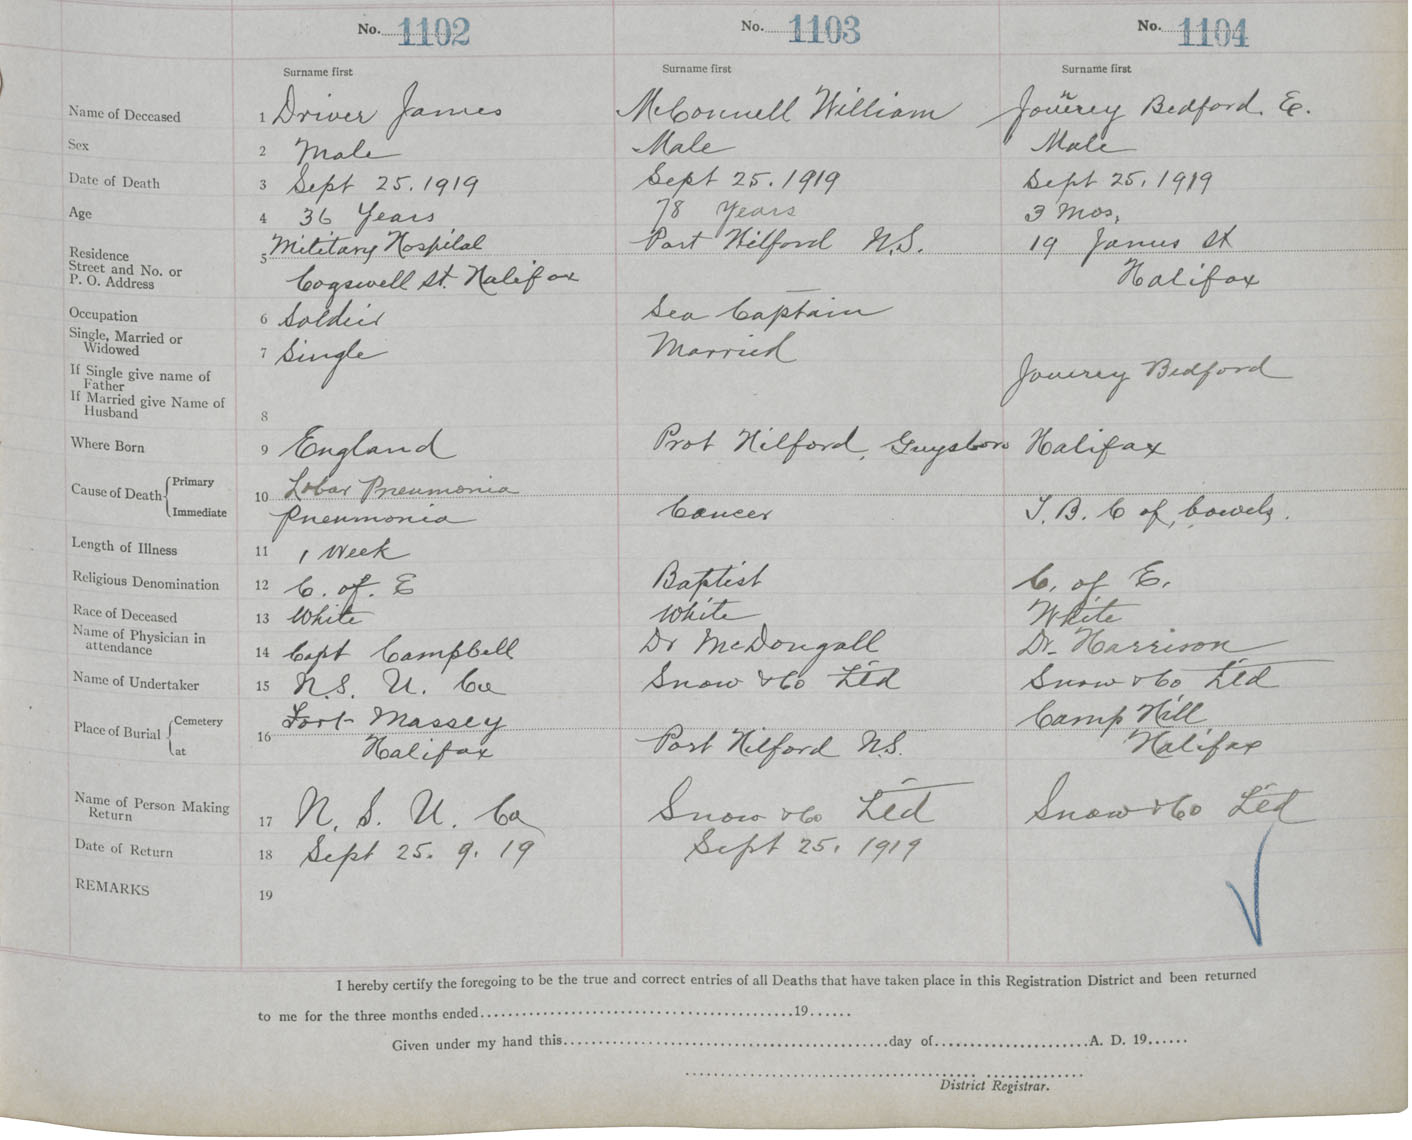 No. 1102 No. 1103 No. 1104
Surname first Surname first Surname first
Name of Deceased 1 Driver James McConnell William Bedford. E.
Sex 2 Male Male Male
Date of Death 3 Sept 25.1919 Sept 25.1919 Sept 25.1919
Age 4 36 Years 78 Years 3 Mos.
Residence Street and No. or P. O. Address 5 Military Hospital Port Hilford N.S. 19 James St
Cogswell St. Halifax Halifax
Occupation 6 Soldier Sea Captain
Single, Married or Widowed 7 Single Married
If Single give name of Father
If Married give Name of Husband 8 Bedford
Where Born 9 England Prot Hilford, Guysboro Halifax
Cause of Death Primary 10 Lobar Pneumonia
Immediate Pneumonia Cancer T.B. C of bowels.
Length of Illness 11 1 Week
Religious Denomination 12 C. of. E Baptist C. of E.
Race of Deceased 13 White White White
Name of Physician in attendance 14 Capt Campbell Dr McDougall Dr. Harrison
Name of Undertaker 15 N.S. U. Co Snow & Co Ltd Snow & Co Ltd
Place of Burial Cemetery 16 Fort Massey Camp Hill
at Halifax Port Hilford N.S. Halifax
Name of Person Making Return 17 N. S. U. Co Snow & Co Ltd Snow & Co Ltd
Date of Return 18 Sept 25. 9. 19 Sept 25. 1919
REMARKS 19
I hereby certify the foregoing to be the true and correct entries of all Deaths that have taken place in this Registration District and been returned
to me for the three months ended........................................19......
Given under my hand this........................................day of......................A. D. 19......
District Registrar.